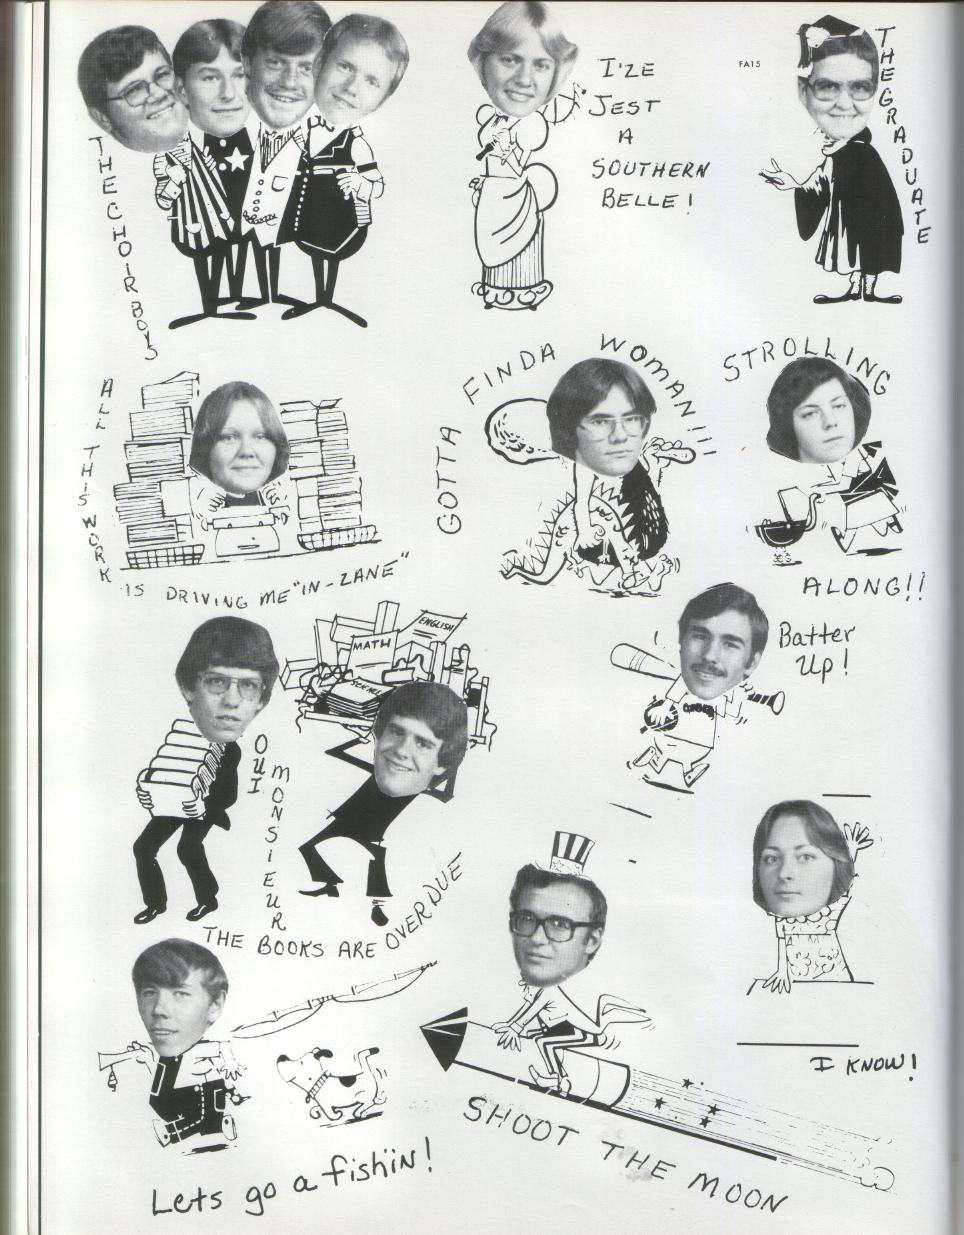 THE CHOIR BOYS
I'ZE
JEST
A
SOUTHERN
BELLE!
FA15
THE GRADUATE
ALL THIS WORK
IS DRIVING ME "IN-ZANE"
GOTTA FINDA WOMAN!!!
STROLLING
ALONG!!
MATH
ENGLISH
SCIENCE
OUI
MONSIEUR
THE BOOKS ARE OVERDUE
Batter
Up!
I KNOW!
Lets go a fishin!
SHOOT THE MOON